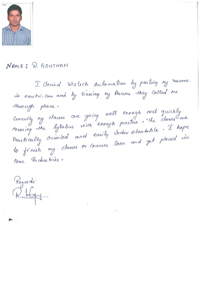 NAME: R GOUTHAM
I found Wistech Automation by posting my resume
in and by viewing my Resume they called me
through phone.
Currently my classes are going well enough and quickly
covering the syllabus with enough practice. The classes are
Practically oriented and easily understandable. I hope
to finish my classes or courses soon and get placed in
core Industries.
Regards